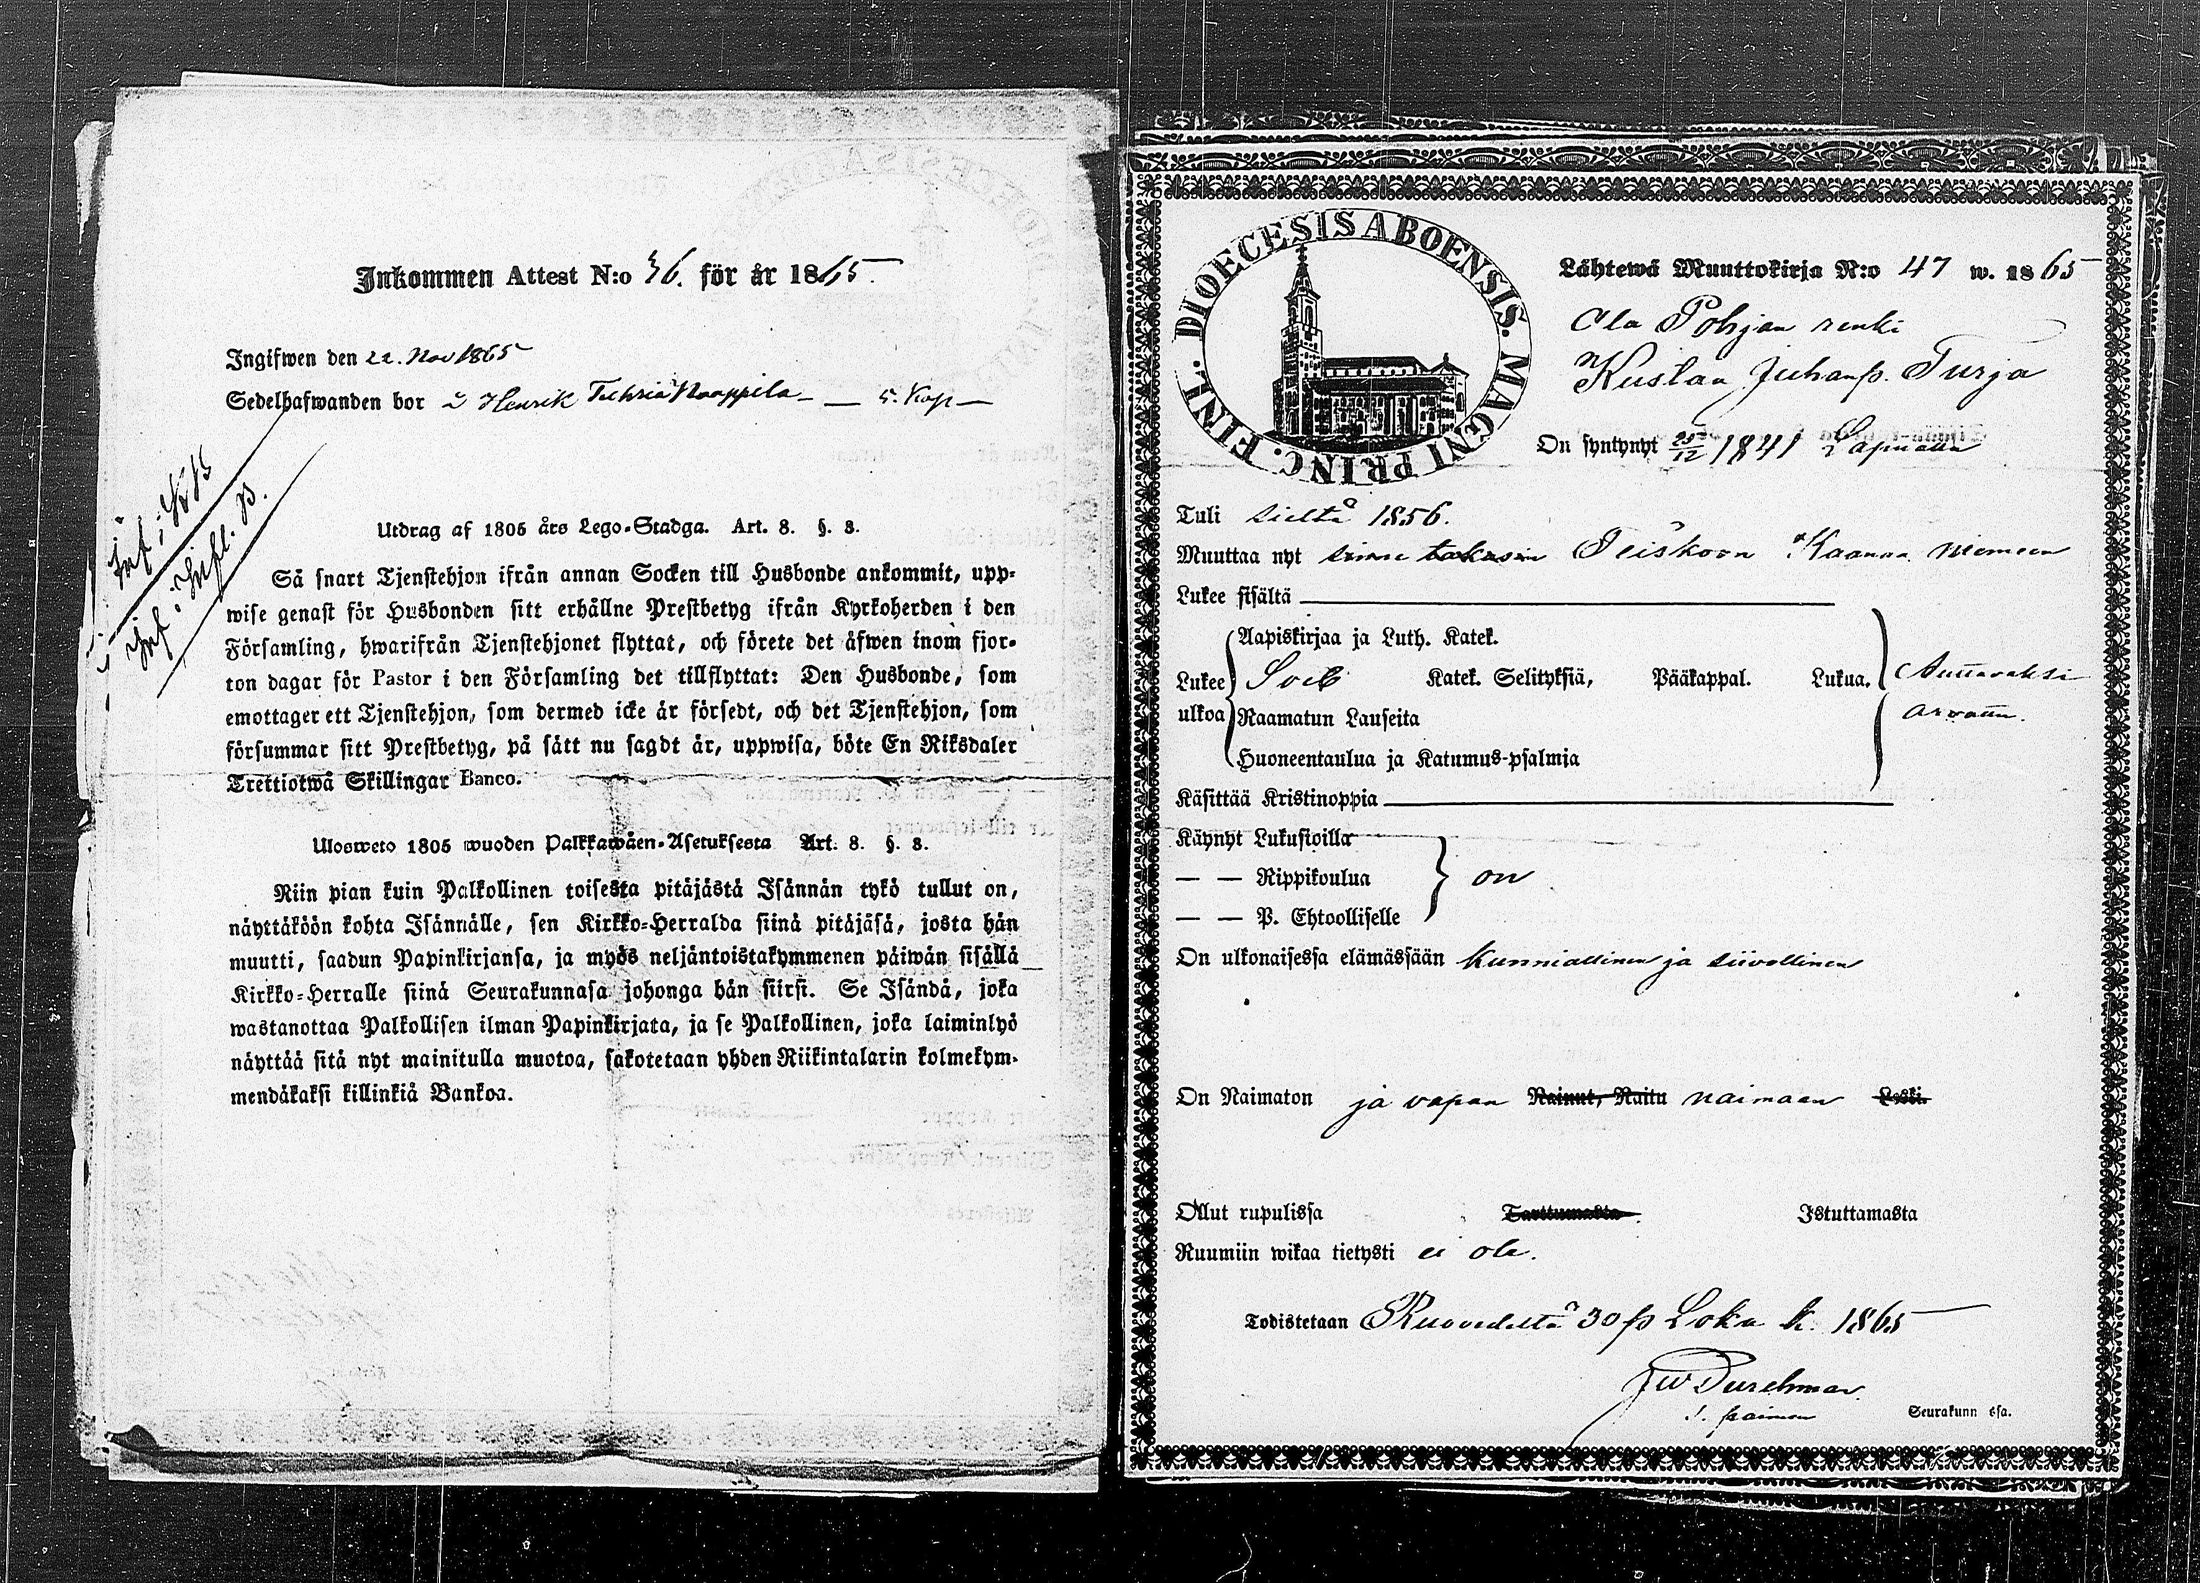 Inkommen Attest N:o 36. för år 1865.
Ingifwen den 22. Nov 1865
Sedelhafwanden bor Henrik Knappila — 5. Kop —
Utdrag af 1805 års Lego-Stadga. Art. 8. §. 8.
Så snart Tjenstehjon ifrån annan Socken till Husbonde ankommit, upp-
wise genast för Husbonden sitt erhållne Prestbetyg ifrån Kyrkoherden i den
Församling, hwarifrån Tjenstehjonet flyttat, och förete det äfwen inom fjor-
ton dagar för Pastor i den Församling det tillflyttat: Den Husbonde, som
emottager ett Tjenstehjon, som dermed icke är försedt, och det Tjenstehjon, som
försummar sitt Prestbetyg, på sätt nu sagdt är, uppwisa, böte En Riksdaler
Trettiotwå Skillingar Banco.
Ulosweto 1805 wuoden Palkkawäen-Asetuksesta Art. 8. §. 8.
Niin pian kuin Palkollinen toisesta pitäjästä Isännän tykö tullut on,
näyttäköön kohta Isännälle, sen Kirkko-Herralda siinä pitäjäsä, josta hän
muutti, saadun Papinkirjansa, ja myös neljäntoistakymmenen päiwän sisällä
Kirkko-Herralle siinä Seurakunnasa johonga hän siirsi. Se Isändä, joka
wastanottaa Palkollisen ilman Papinkirjata, ja se Palkollinen, joka laiminlyö
näyttää sitä nyt mainitulla muotoa, sakotetaan yhden Riikintalarin kolmekym-
mendäkaksi killinkiä Bankoa.
DIOECESIS ABOENSIS. MAGNI PRINC. FINL.
Lähtewä Muuttokirja N:o 47 w. 1865
Ala Pohjan renki
Kustaa Juhanp. Turja
On syntynyt 25/12 1841 Lapualla
Tuli sieltä 1856.
Muuttaa nyt sinne takasin Teiskoon Kaanaa niemeen
Lukee sisältä
Aapiskirjaa ja Luth. Katek.
Lukee Katek. Selityksiä, Pääkappal. Lukua. Auttavaksi
ulkoa Raamatun Lauseita arvattu.
Huoneentaulua ja Katumus-psalmia
Käsittää Kristinoppia
Käynyt Lukusioilla
— — Rippikoulua on
— — P. Ehtoolliselle
On ulkonaisessa elämässään kunniallinen ja siivollinen
On Naimaton ja vapaa Nainut, Naitu naimaan Leski.
Ollut rupulissa Tarttumasta Istuttamasta
Ruumiin wikaa tietysti ei ole.
Todistetaan Ruovedeltä 30 p Loka k. 1865
JW Durchman
Seurakunn ssa.